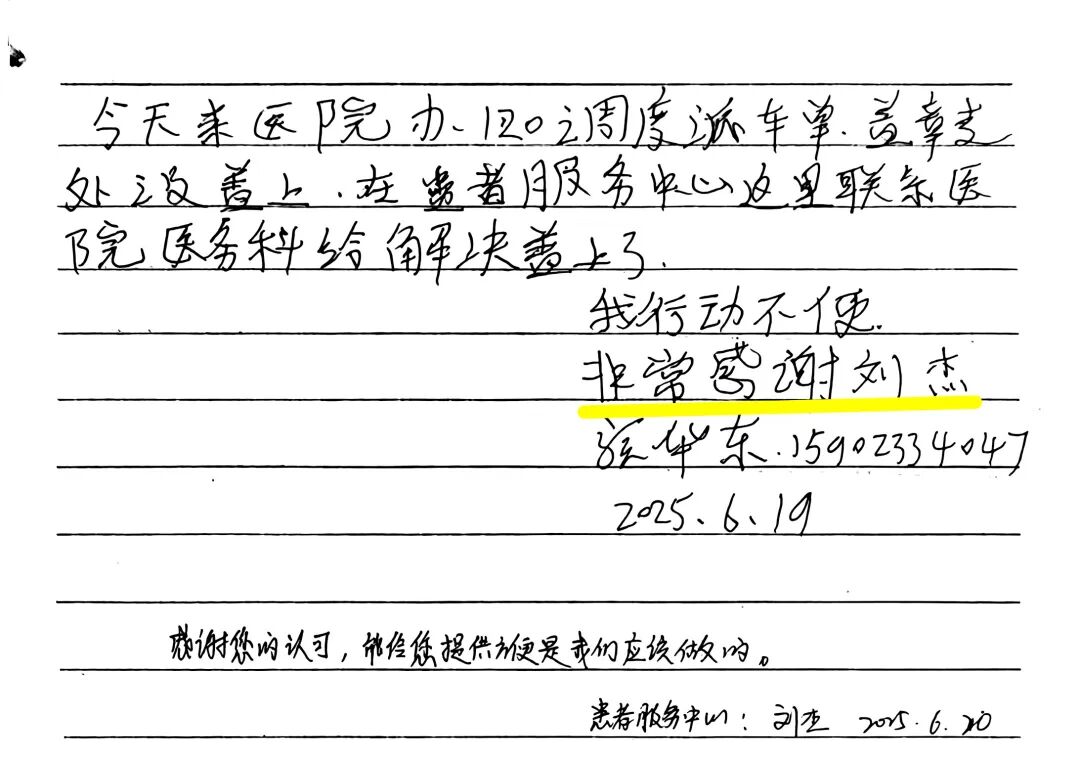 今天来医院办、120调度派车单.盖章支
处没盖上.在患者服务中心这里联系医
院医务科给解决盖上了.
我行动不便.
非常感谢刘杰
华东.15902334047
2025.6.19
感谢您的认可，能给您提供方便是我们应该做的。
患者服务中心：刘杰 2025.6.20